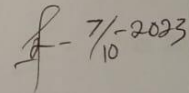 - 7/10-2023